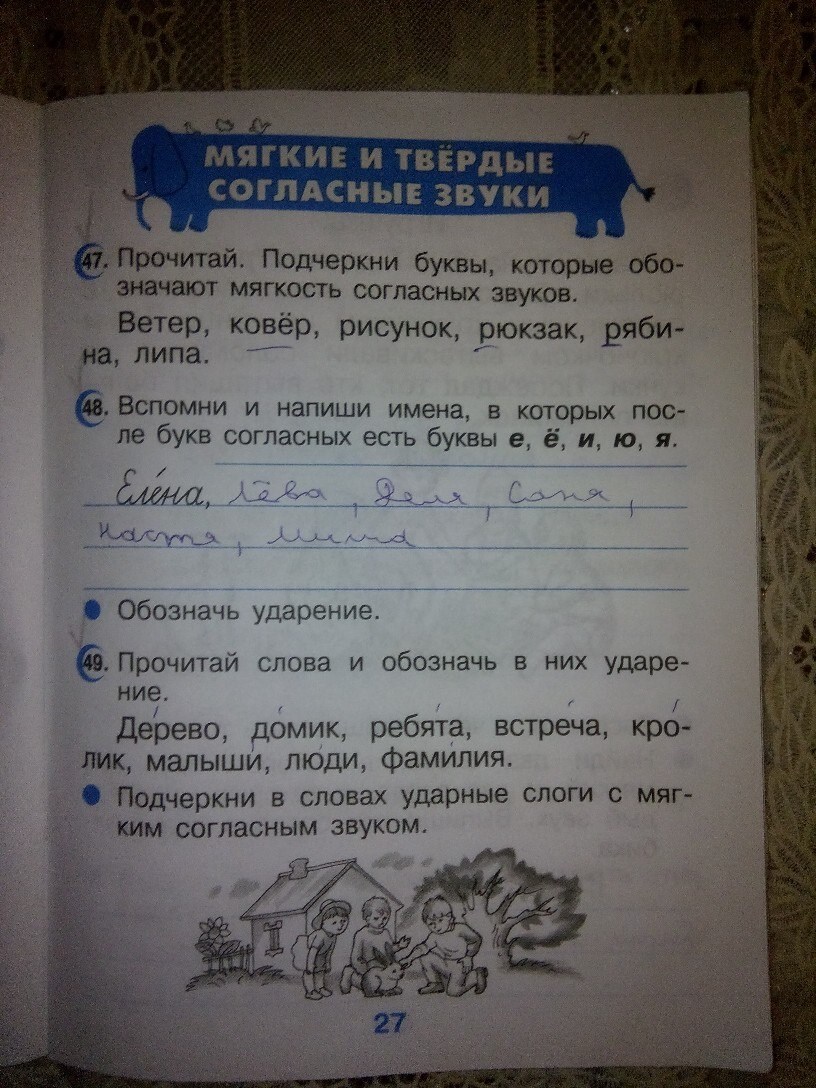 МЯГКИЕ И ТВЁРДЫЕ
СОГЛАСНЫЕ ЗВУКИ
47. Прочитай. Подчеркни буквы, которые обо-
значают мягкость согласных звуков.
Ветер, ковёр, рисунок, рюкзак, ряби-
на, липа.
48. Вспомни и напиши имена, в которых пос-
ле букв согласных есть буквы е, ё, и, ю, я.
Еле́на, Лёва, Леля, Соня,
Настя, Миша
Обозначь ударение.
49. Прочитай слова и обозначь в них ударе-
ние.
Де́рево, до́мик, ребя́та, встре́ча, кро́-
лик, малыши́, лю́ди, фами́лия.
Подчеркни в словах ударные слоги с мяг-
ким согласным звуком.
27